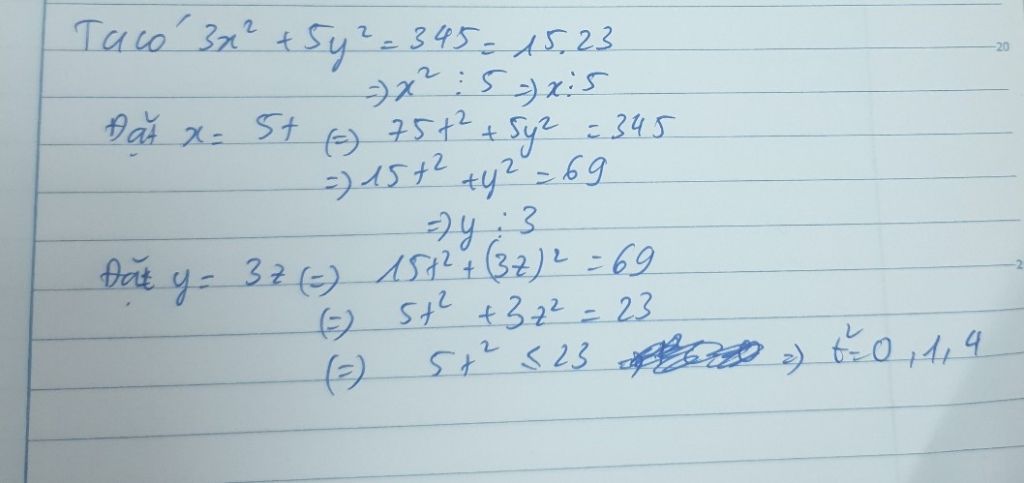 Ta có 3x² + 5y² = 345 = 15.23
=) x² ⋮ 5 =) x ⋮ 5
Đặt x = 5t (=) 75t² + 5y² = 345
=) 15t² + y² = 69
=) y ⋮ 3
Đặt y = 3z (=) 15t² + (3z)² = 69
(=) 5t² + 3z² = 23
(=) 5t² ≤ 23 =) t² = 0, 1, 4
20
2